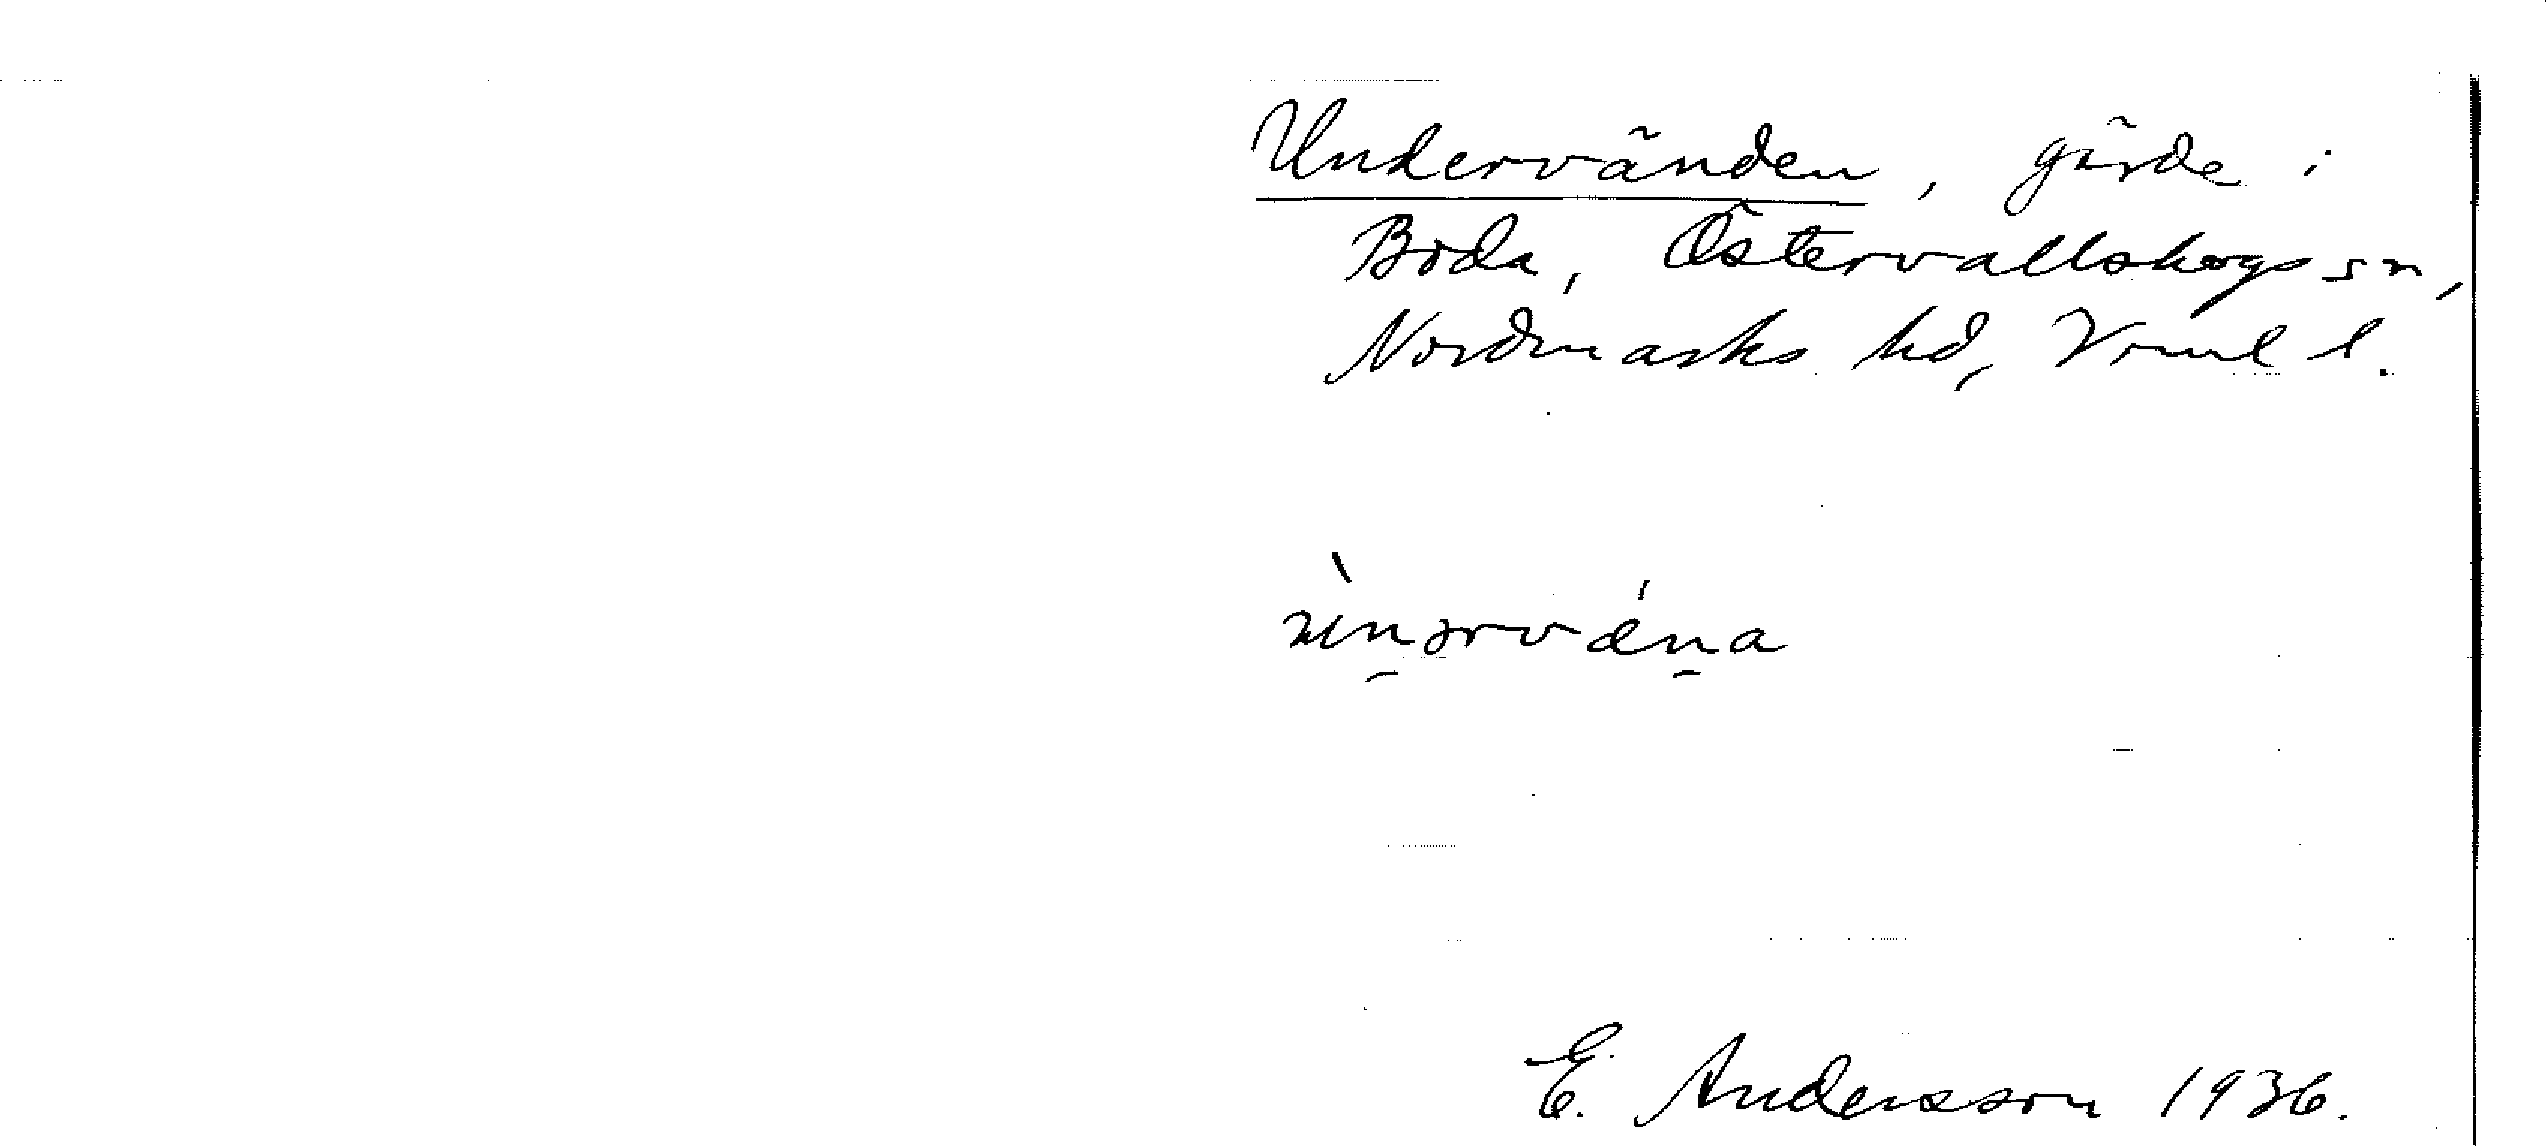 Undervänden, gärde i
Boda, Östervallskogs sn,
Nordmarks hd, Vrml l.
E. Andersson 1936.